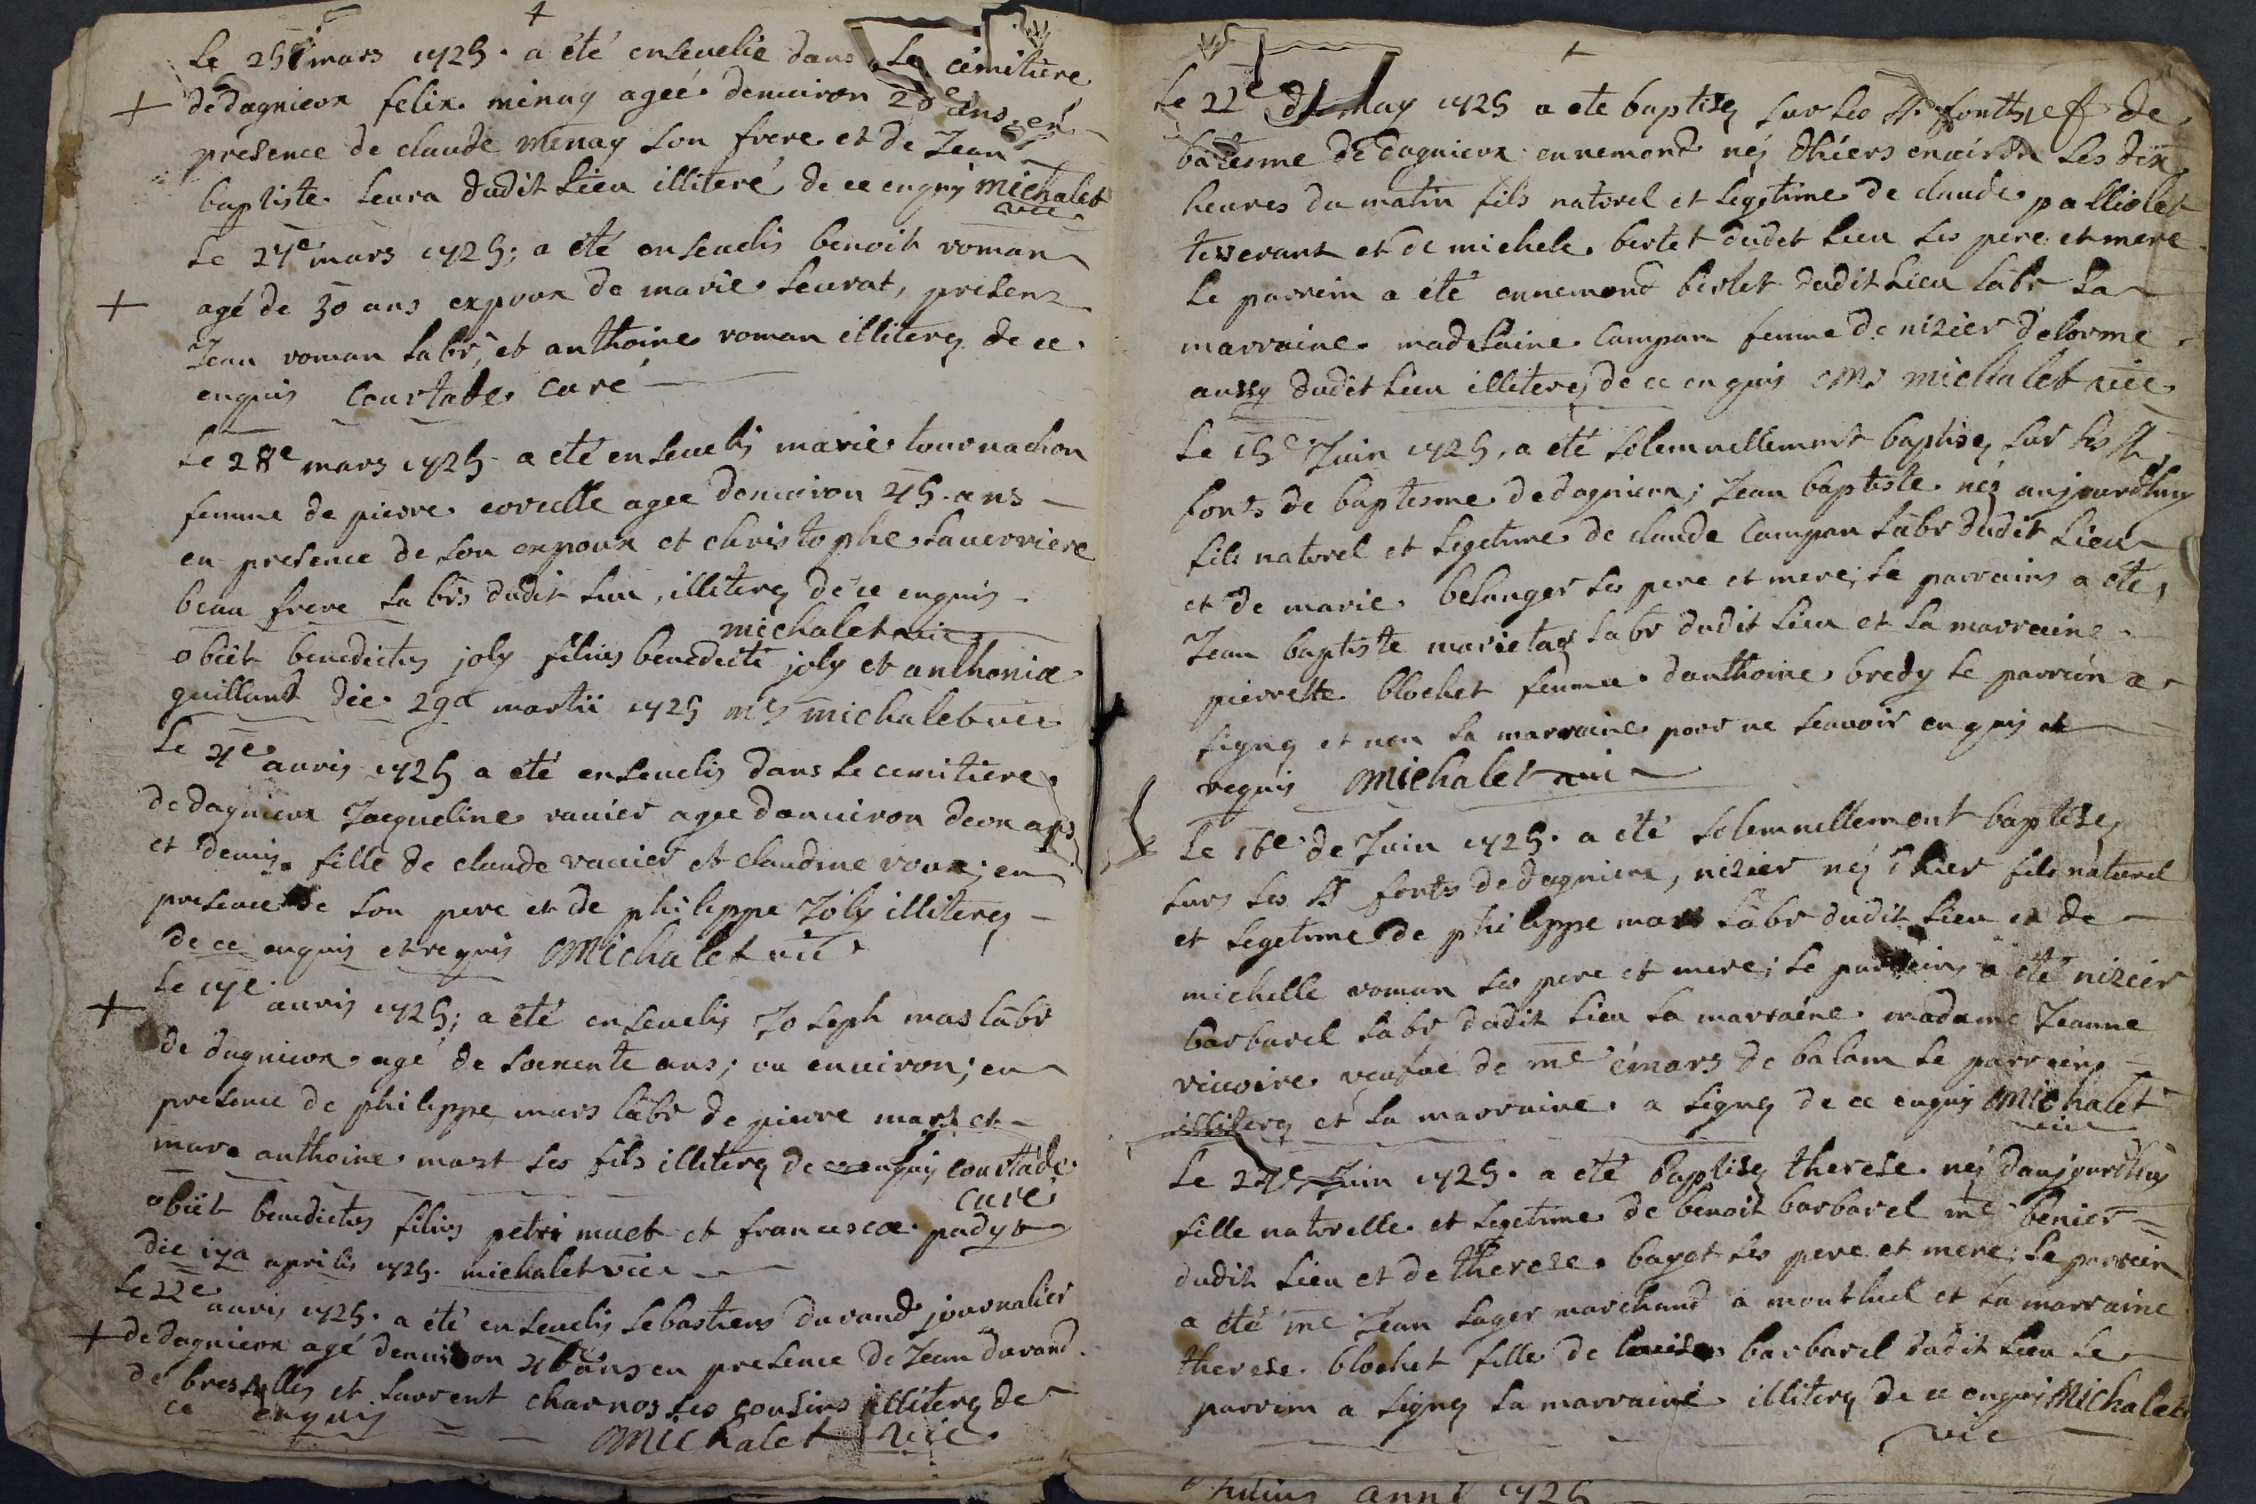 Le 25e mars 1725. a été enseuelie dans Le cémitiere
de dagnieux felix menay agée denuiron 28e ans. en
presence de claude menay son frere et de Jean
baptiste seura dudit Lieu illiteré de ce enquis michalet
vic
Le 27e mars 1725; a été enseuelis benoit roman
agé de 30 ans expoux de marie seurat, presenz
Jean roman labr, et anthoine roman illiterez de ce
enquis Courtade curé
Le 28e mars 1725 a été enseuelis marie tournachon
femme de pierre coreille agee denuiron 45. ans
en presence de son expoux et christophe Lauerriere
beau frere labrs dudit lieu, illiterez de ce enquis
michalet vic
obiit benedictus joly filius benedicti joly et anthoniæ
guilland die 29a martii 1725 ms michalet vic
Le 4e auris 1725 a été enseuelis dans le cemitiere
de dagnieux Jacqueline vanier agee danuiron deux ans
et demis. fille de claude vanier et claudine roux; en
presence de son pere et de philippe Joly illiterez
de ce enquis et requis Michalet vic
Le 17e auris 1725; a été enseuelis Joseph mas labr
de dagnieux agé de soixente ans; ou enuiron; en
presence de philippe mars labr de pierre mart et
marc anthoine mart ses fils illiterez de ce enquis courtade
curé
obiit benedictus filius petri muet et francescæ padyt
die 17a aprilis 1725. michalet vic
Le 22e auris 1725. a été enseuelis sebastiens durand journalier
de dagnieux agé denuiron 46 ans en presence de Jean durand
de bressolles et laurent charnos ses cousins illiterez de
ce enquis Michalet vic
Le 22e de may 1725 a ete baptisez sur les sts fonts de
batesme de dagnieux ennemond néz dhiers enuiron les dix
heures du matin fils naturel et legetime de claude palliolet
tesserant et de michele berlet dudet lieu ses pere et mere
Le parrein a été ennemond berlet dudit Lieu labr la
marraine madelaine Campan femme de nizier delorme
aussy dudit lieu illiterez de ce enquis Ms michalet vic
Le 15e Juin 1725, a été solemnellement baptisez sur les sts
fonts de baptesme de dagnieux; Jean baptiste néz aujourdhuy
fils naturel et legetime de claude Campan labr dudit Lieu
et de marie belanger ses pere et mere; le parrains a été
Jean baptiste marietas labr dudit lieu et la marraine
pierrette blochet femme danthoine bredy le parrein a
signez et non la marraine pour ne scauoir enquis et
requis Michalet vic
Le 16e de Juin 1725. a été solemnellement baptisez
surs les sts fonts de dagnieux, nizier néz dhier fils naturel
et legetime de philippe mars labr dudit lieu et de
michelle roman ses pere et mere; le parreins a été nizier
barbarel labr dudit lieu la marraine madame Jeanne
vicoire veufue de me émars de balam le parreins
illiterez et la marraine a signez de ce enquis Michalet
vic
Le 24e Juin 1725. a été baptisez therese néz daujourdhuy
fille naturelle et legetime de benoit barbarel me benier
dudit lieu et de therese bayet ses pere et mere; le parrein
a été me Jean lager marchand a montluel et la marraine
therese blochet fille de barbarel dudit lieu le
parrein a signez la marraine illiterez de ce enquis Michalet
vic
anno 1725